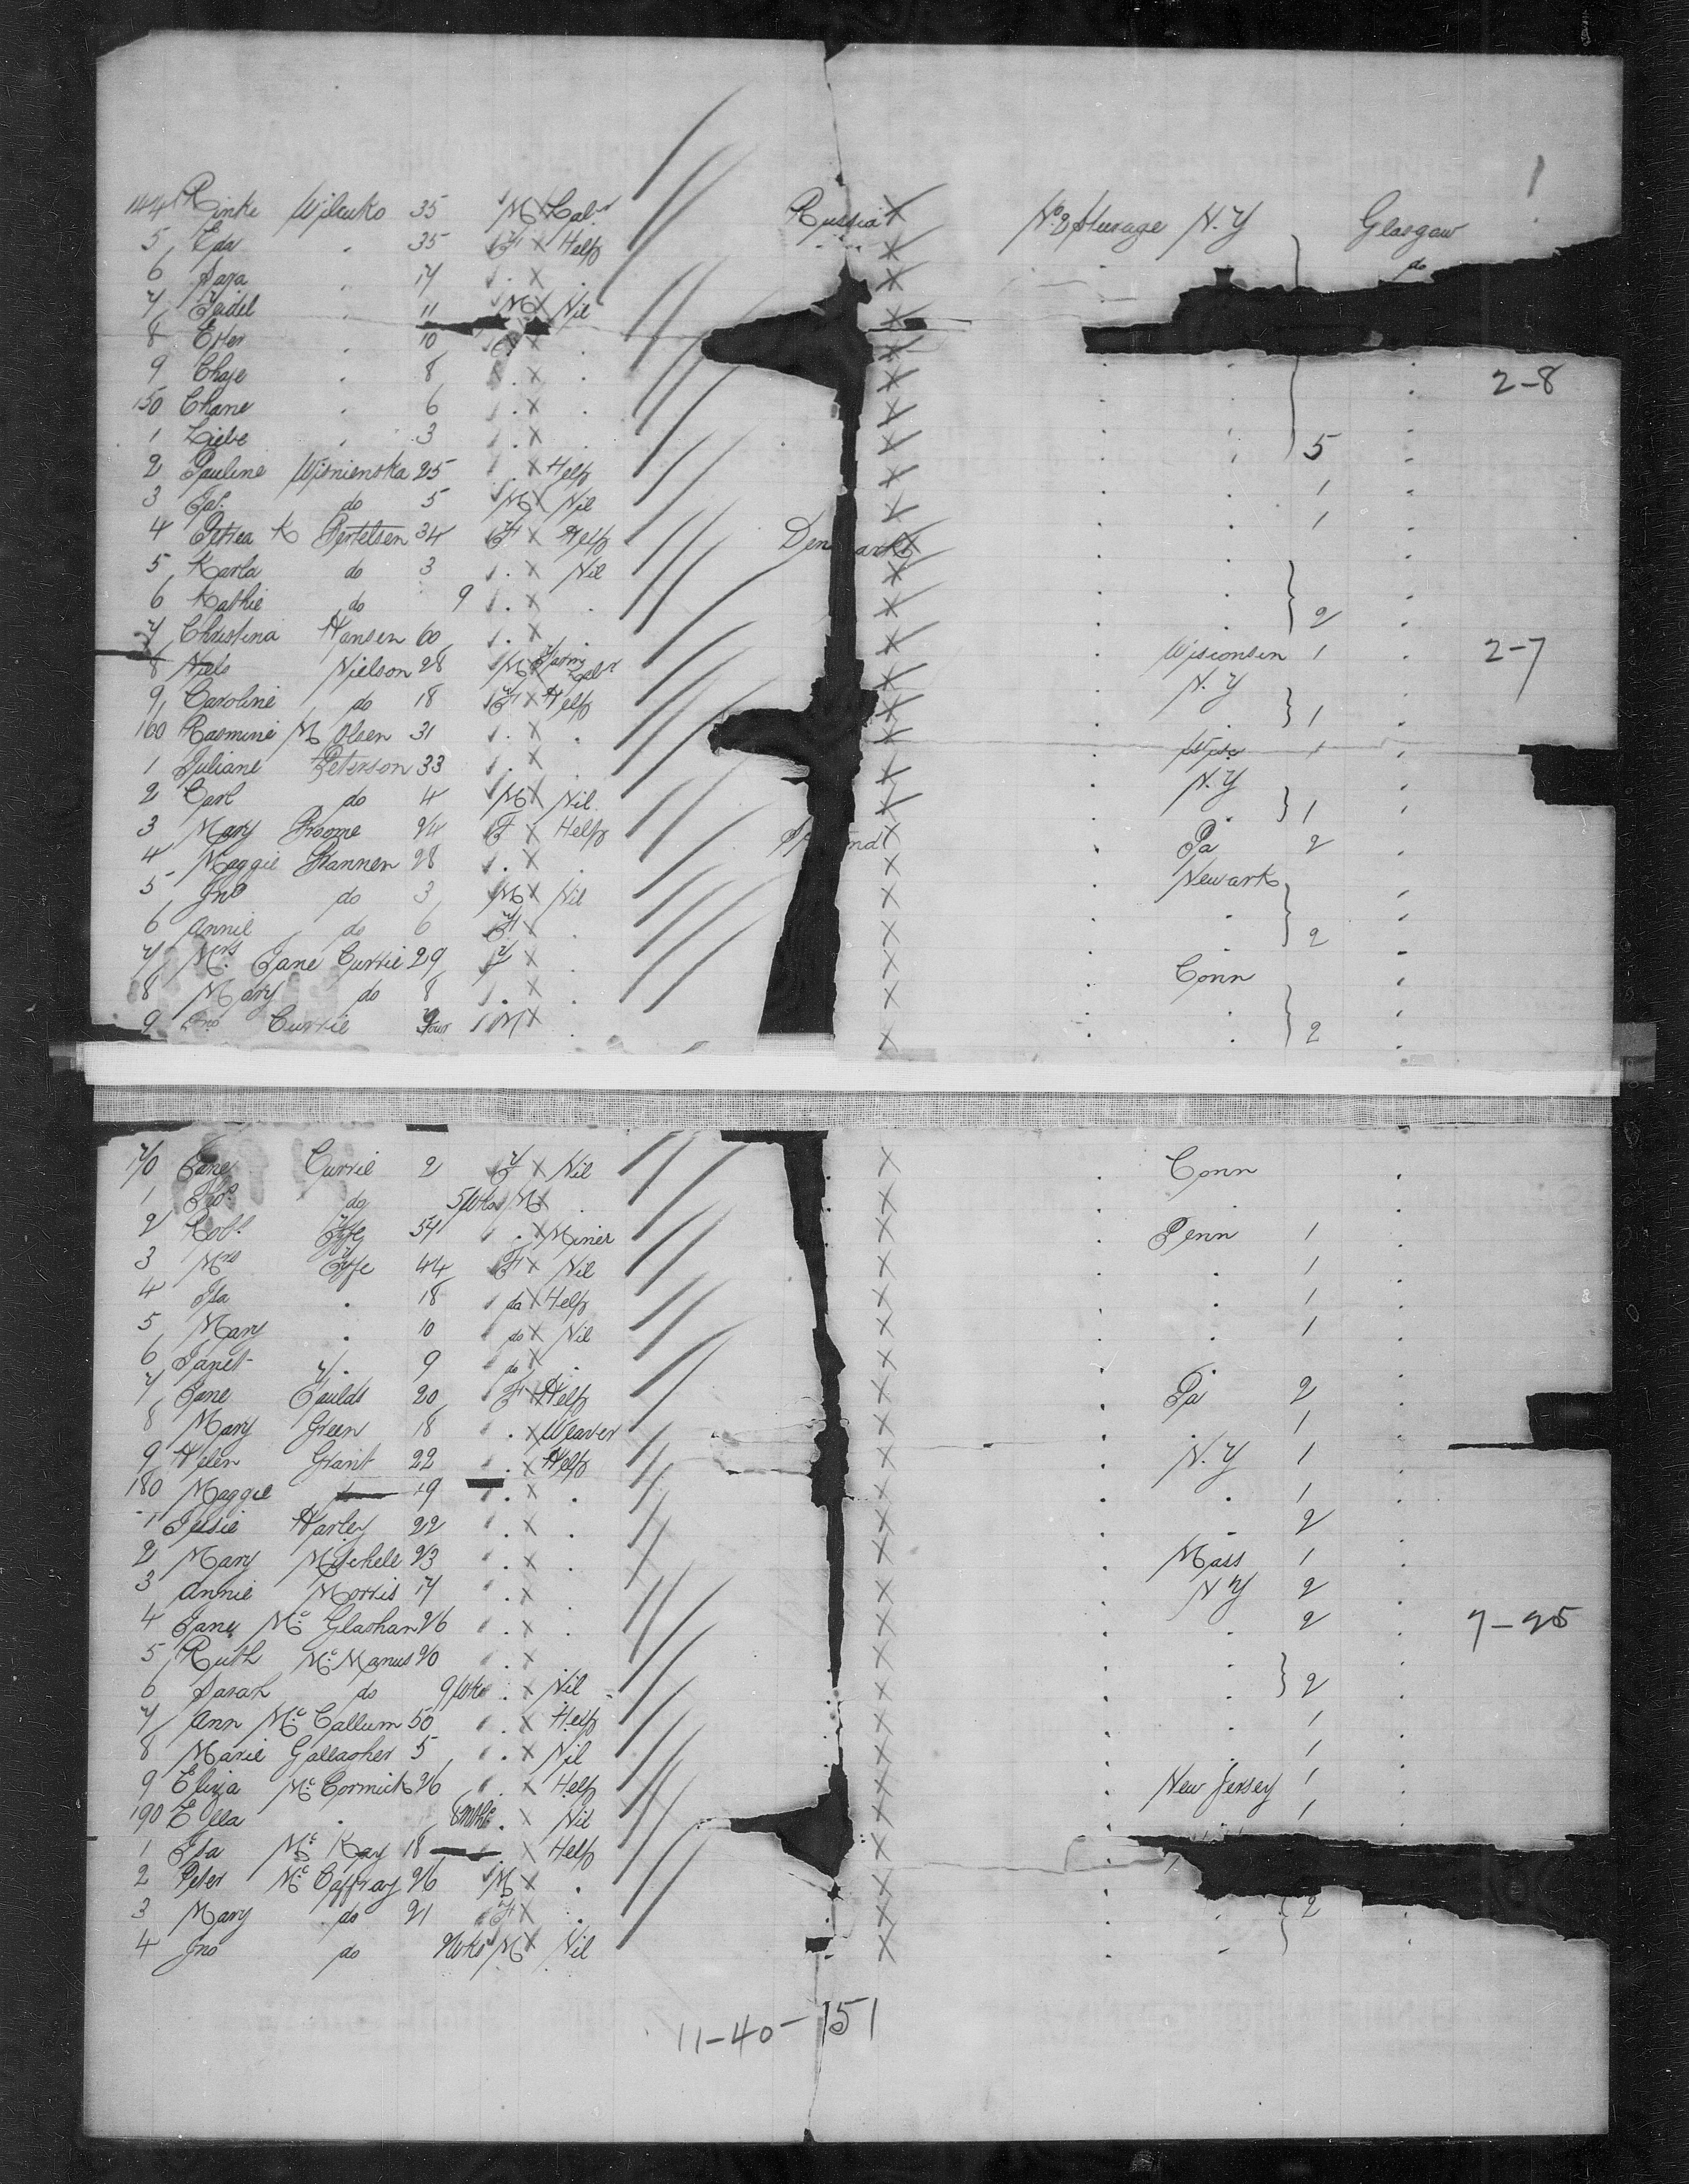 1
144 Rinke Wilcuko 35 M X Labr Russia X No 2 Steerage N.Y Glasgow
5 Eda . 35 F X Help X . . do
6 Sara . 17 . X . X
7 Feidel . 11 M X Nil X
8 Ester . 10 F X . X
9 Chaje . 8 . X . X . . . 2-8
150 Chane . 6 . X . X . . .
1 Liebe . 3 . X X . . 5 .
2 Pauline Wisnienska 25 . X Help X . . 1 .
3 Jos. do 5 M X Nil X . . 1 .
4 Petrea K Bertelsen 34 F X Help Denmark X . . .
5 Karla do 3 . X Nil X . . .
6 Kathie do 9 . X . X . . 2 .
7 Christina Hansen 60 . X . X . Wisconsin 1 . 2-7
8 Niels Nielson 28 M X Farm Labr X . N.Y .
9 Caroline do 18 F X Help X . . 1 .
160 Rasmine M Olsen 31 . X . X . 1 .
1 Juliane Peterson 33 . X . X . N.Y .
2 Carl do 4 M X Nil X . . 1 .
3 Mary Broome 24 F X Help X . Pa 2 .
4 Maggie Brannen 28 . X . X . Newark .
5 Jno do 3 M X Nil X . . .
6 Annie do 6 F X . X . . 2 .
7 Mrs Jane Currie 29 F X . X . Conn .
8 Mary do 8 . X . X . . .
9 Jno Currie 4 M X . X . . 2 .
170 Jane Currie 2 F X Nil X . Conn .
1 Thos. do 5 Wks M X . X . . .
2 Robt. Fyfe 54 . X Miner X . Penn 1 .
3 Mrs Fyfe 44 F X Nil X . . 1 .
4 Isa . 18 do X Help X . . 1 .
5 Mary . 10 do X Nil X . . 1 .
6 Janet . 9 do X . X . . .
7 Jane Faulds 20 F X Help X . Pa 2 .
8 Mary Green 18 . X Weaver X . . 1 .
9 Helen Grant 22 . X Help X . N.Y 1 .
180 Maggie 19 . X . X . . 1 .
1 Jessie Harley 22 . X . X . 2 .
2 Mary Mitchell 23 . X . X . Mass 1 .
3 Annie Morris 17 . X . X . N Y 2 .
4 Jane Mc Glashan 26 . X . X . . 2 . 7-25
5 Ruth Mc Manus 20 . X X . . .
6 Sarah do 9 Wks . X Nil X . . 2 .
7 Ann Mc Callum 50 . X Help X . . 1 .
8 Marie Gallagher 5 . X Nil X . . 1 .
9 Eliza Mc Cormick 26 . X Help X . New Jersey 1 .
190 Ella . 8 mths . X Nil X . 1 .
1 Isa Mc Kay 18 . X Help X
2 Peter Mc Caffray 26 M X . X .
3 Mary do 21 F X . X . . 2 .
4 Jno do Wks M X Nil X . .
11-40-151